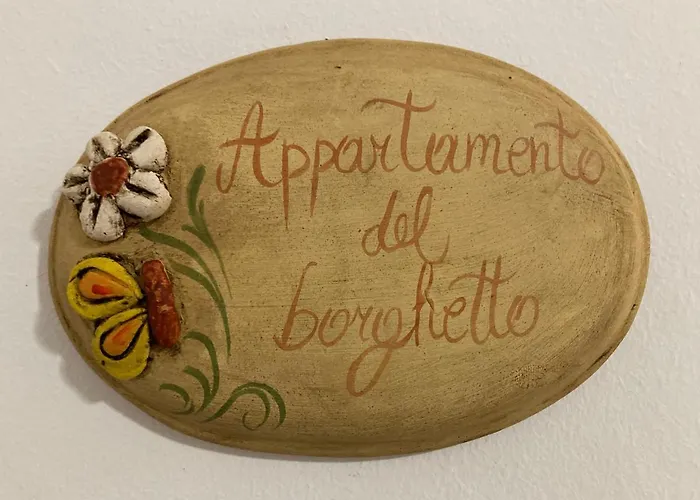 Appartamento
del
borghetto